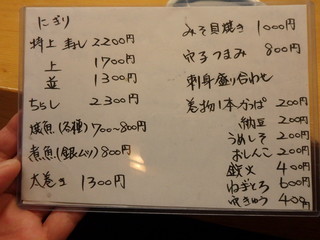 にぎり
特上 まぐろ 2200円
上 1700円
並 1300円
ちらし 2300円
焼魚(各種) 700~800円
煮魚(銀ムツ) 800円
太巻き 1300円
みそ貝焼き 1000円
穴子つまみ 800円
刺身盛り合わせ
巻物1本かっぱ 200円
納豆 200円
うめしそ 200円
おしんこ 200円
鉄火 400円
ねぎとろ 600円
穴きゅう 400円